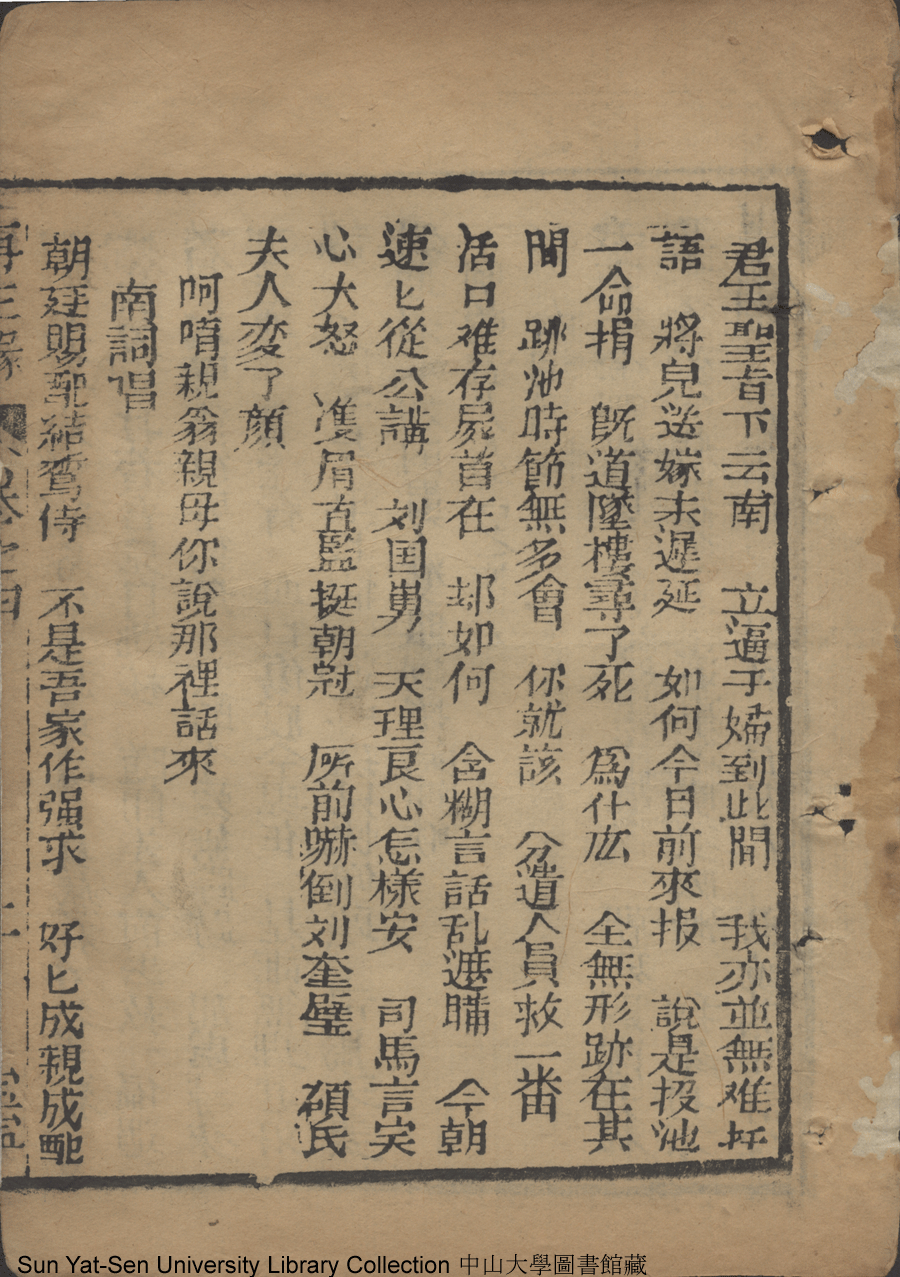 君王聖旨下云南　立逼子婦到此間　我亦並無难抂
語　將兒送嫁未遲延　如何今日前來报　說是投池
一命捐　既道墜樓尋了死　爲什庅　全無形跡在其
間　跳池時節無多會　你就該　分遣人員救一番
活口难存屍首在　却如何　含糊言話乱遮瞞　今朝
速匕從公講　刘国舅　天理良心怎樣安　司馬言完
心大怒　雙眉直竪挺朝冠　厛前嚇倒刘奎璧　顧氏
夫人变了顔
呵唷親翁親母你說那裡話來
南詞唱
朝廷賜配結鸞俦　不是吾家作强求　好匕成親成配
再生緣　卷之四
Sun Yat-Sen University Library Collection 中山大學圖書館藏